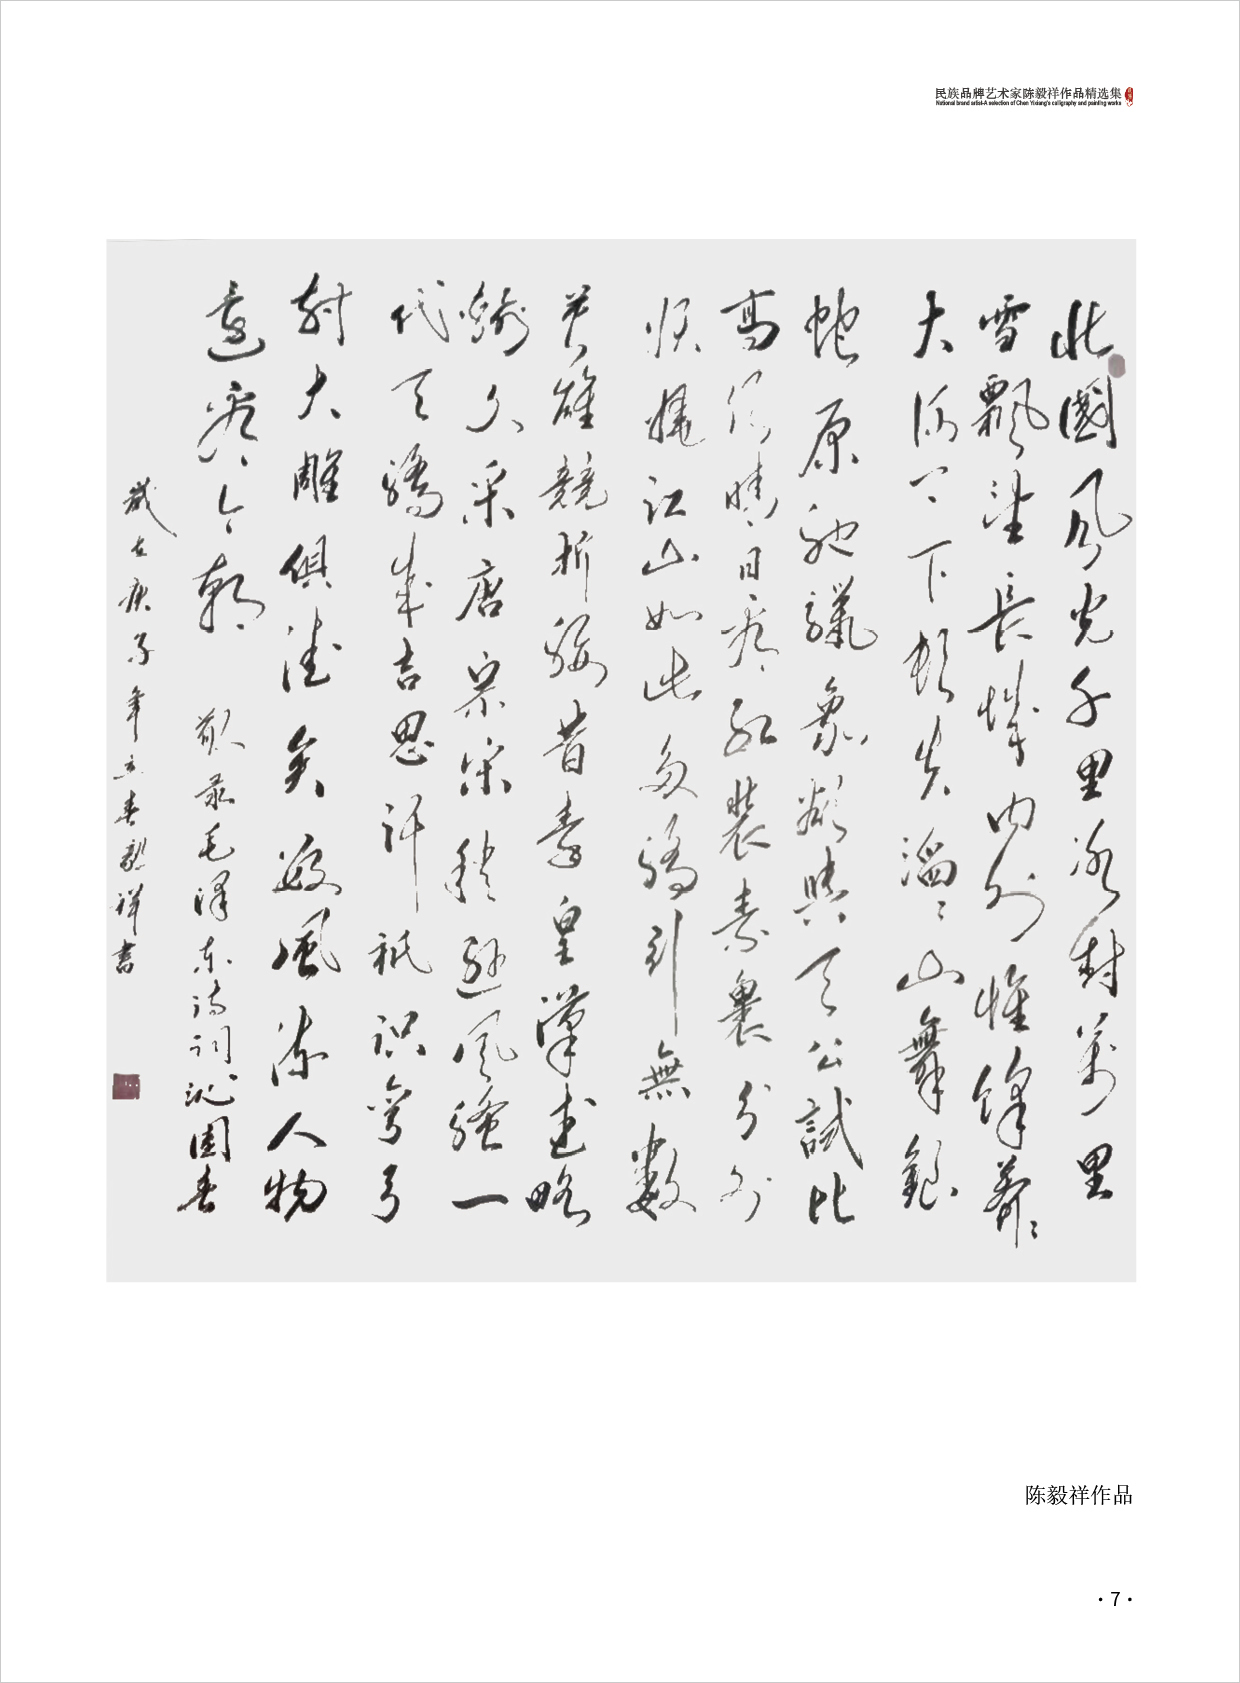 民族品牌艺术家陈毅祥作品精选集
National brand artist-A selection of Chen Yixiang's calligraphy and painting works
北國風光千里冰封萬里
雪飄望長城內外惟餘莽〻
大河上下頓失滔〻山舞銀
蛇原馳蠟象欲與天公試比
高須晴日看紅裝素裹分外
妖嬈江山如此多嬌引無數
英雄競折腰昔秦皇漢武略
輸文采唐宗宋稍遜風騷一
代天驕成吉思汗祇識彎弓
射大雕俱往矣數風流人物
還看今朝 敬录毛澤东诗詞沁園春
歲在庚子年立春毅祥書
陈毅祥作品
·7·